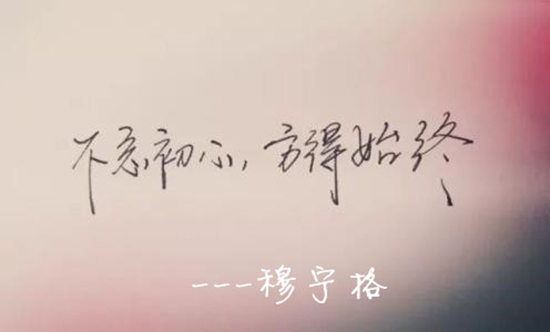 不忘初心,方得始终
---穆宁格